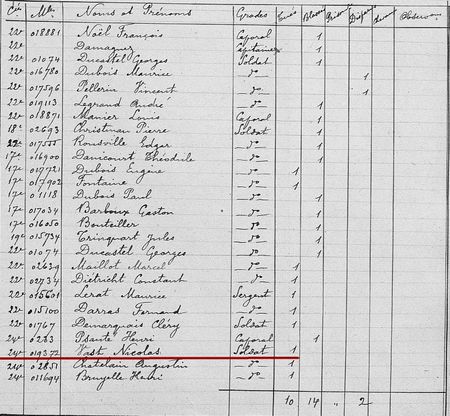 Cie Mle Noms et Prénoms Grades Tués Blessés Dispar Observa
22e 018881 Noël François Caporal 1
22e Damaguez Capitaine 1
22e 01074 Ducastel Georges Soldat 1
22e 016780 Dubois Maurice -do- 1
22e 017596 Pellerin Vincent -do- 1
22e 019113 Legrand André -do- 1
22e 018871 Manier Louis Caporal 1
18e 02693 Christman Pierre Soldat 1
22e Rousville Edgar -do- 1
17e 016900 Dancourt Théodile -do- 1
17e 017721 Dubois Eugène -do- 1
17e 017902 Fontaine -do- 1
17e 01118 Dubois Paul -do- 1
17e 017034 Barboux Gaston -do- 1
17e 016050 Bouteiller -do- 1
19e 015734 Trinquart Jules -do- 1
22e 01074 Ducastel Georges -do- 1
22e 02629 Maillot Marcel -do- 1
22e 02734 Dietricht Constant -do- 1
22e 015601 Lerat Maurice Sergent 1
22e 015100 Darras Fernand -do- 1
22e 01767 Demarquais Cléry Soldat 1
24e Psauté Henri Caporal 1
24e 019372 Vast Nicolas Soldat 1
24e 02851 Chatelain Augustin -do- 1
24e 011694 Bruyelle Henri -do- 1
10 14 " 2